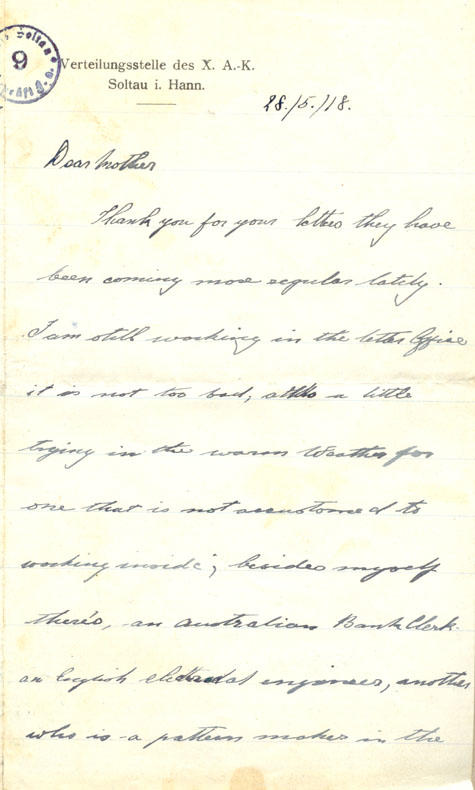 Soltau
9
Verteilungsstelle des X. A.-K.
Soltau i. Hann.
28./5./18.
Dear Mother
Thank you for your letters they have
been coming more regular lately.
I am still working in the letter Office
it is not too bad, altho a little
trying in the warm Weather for
one that is not accustomed to
working inside; besides myself
there's, an Australian Bank Clerk
an English electrical engineer, another
who is a pattern maker in the